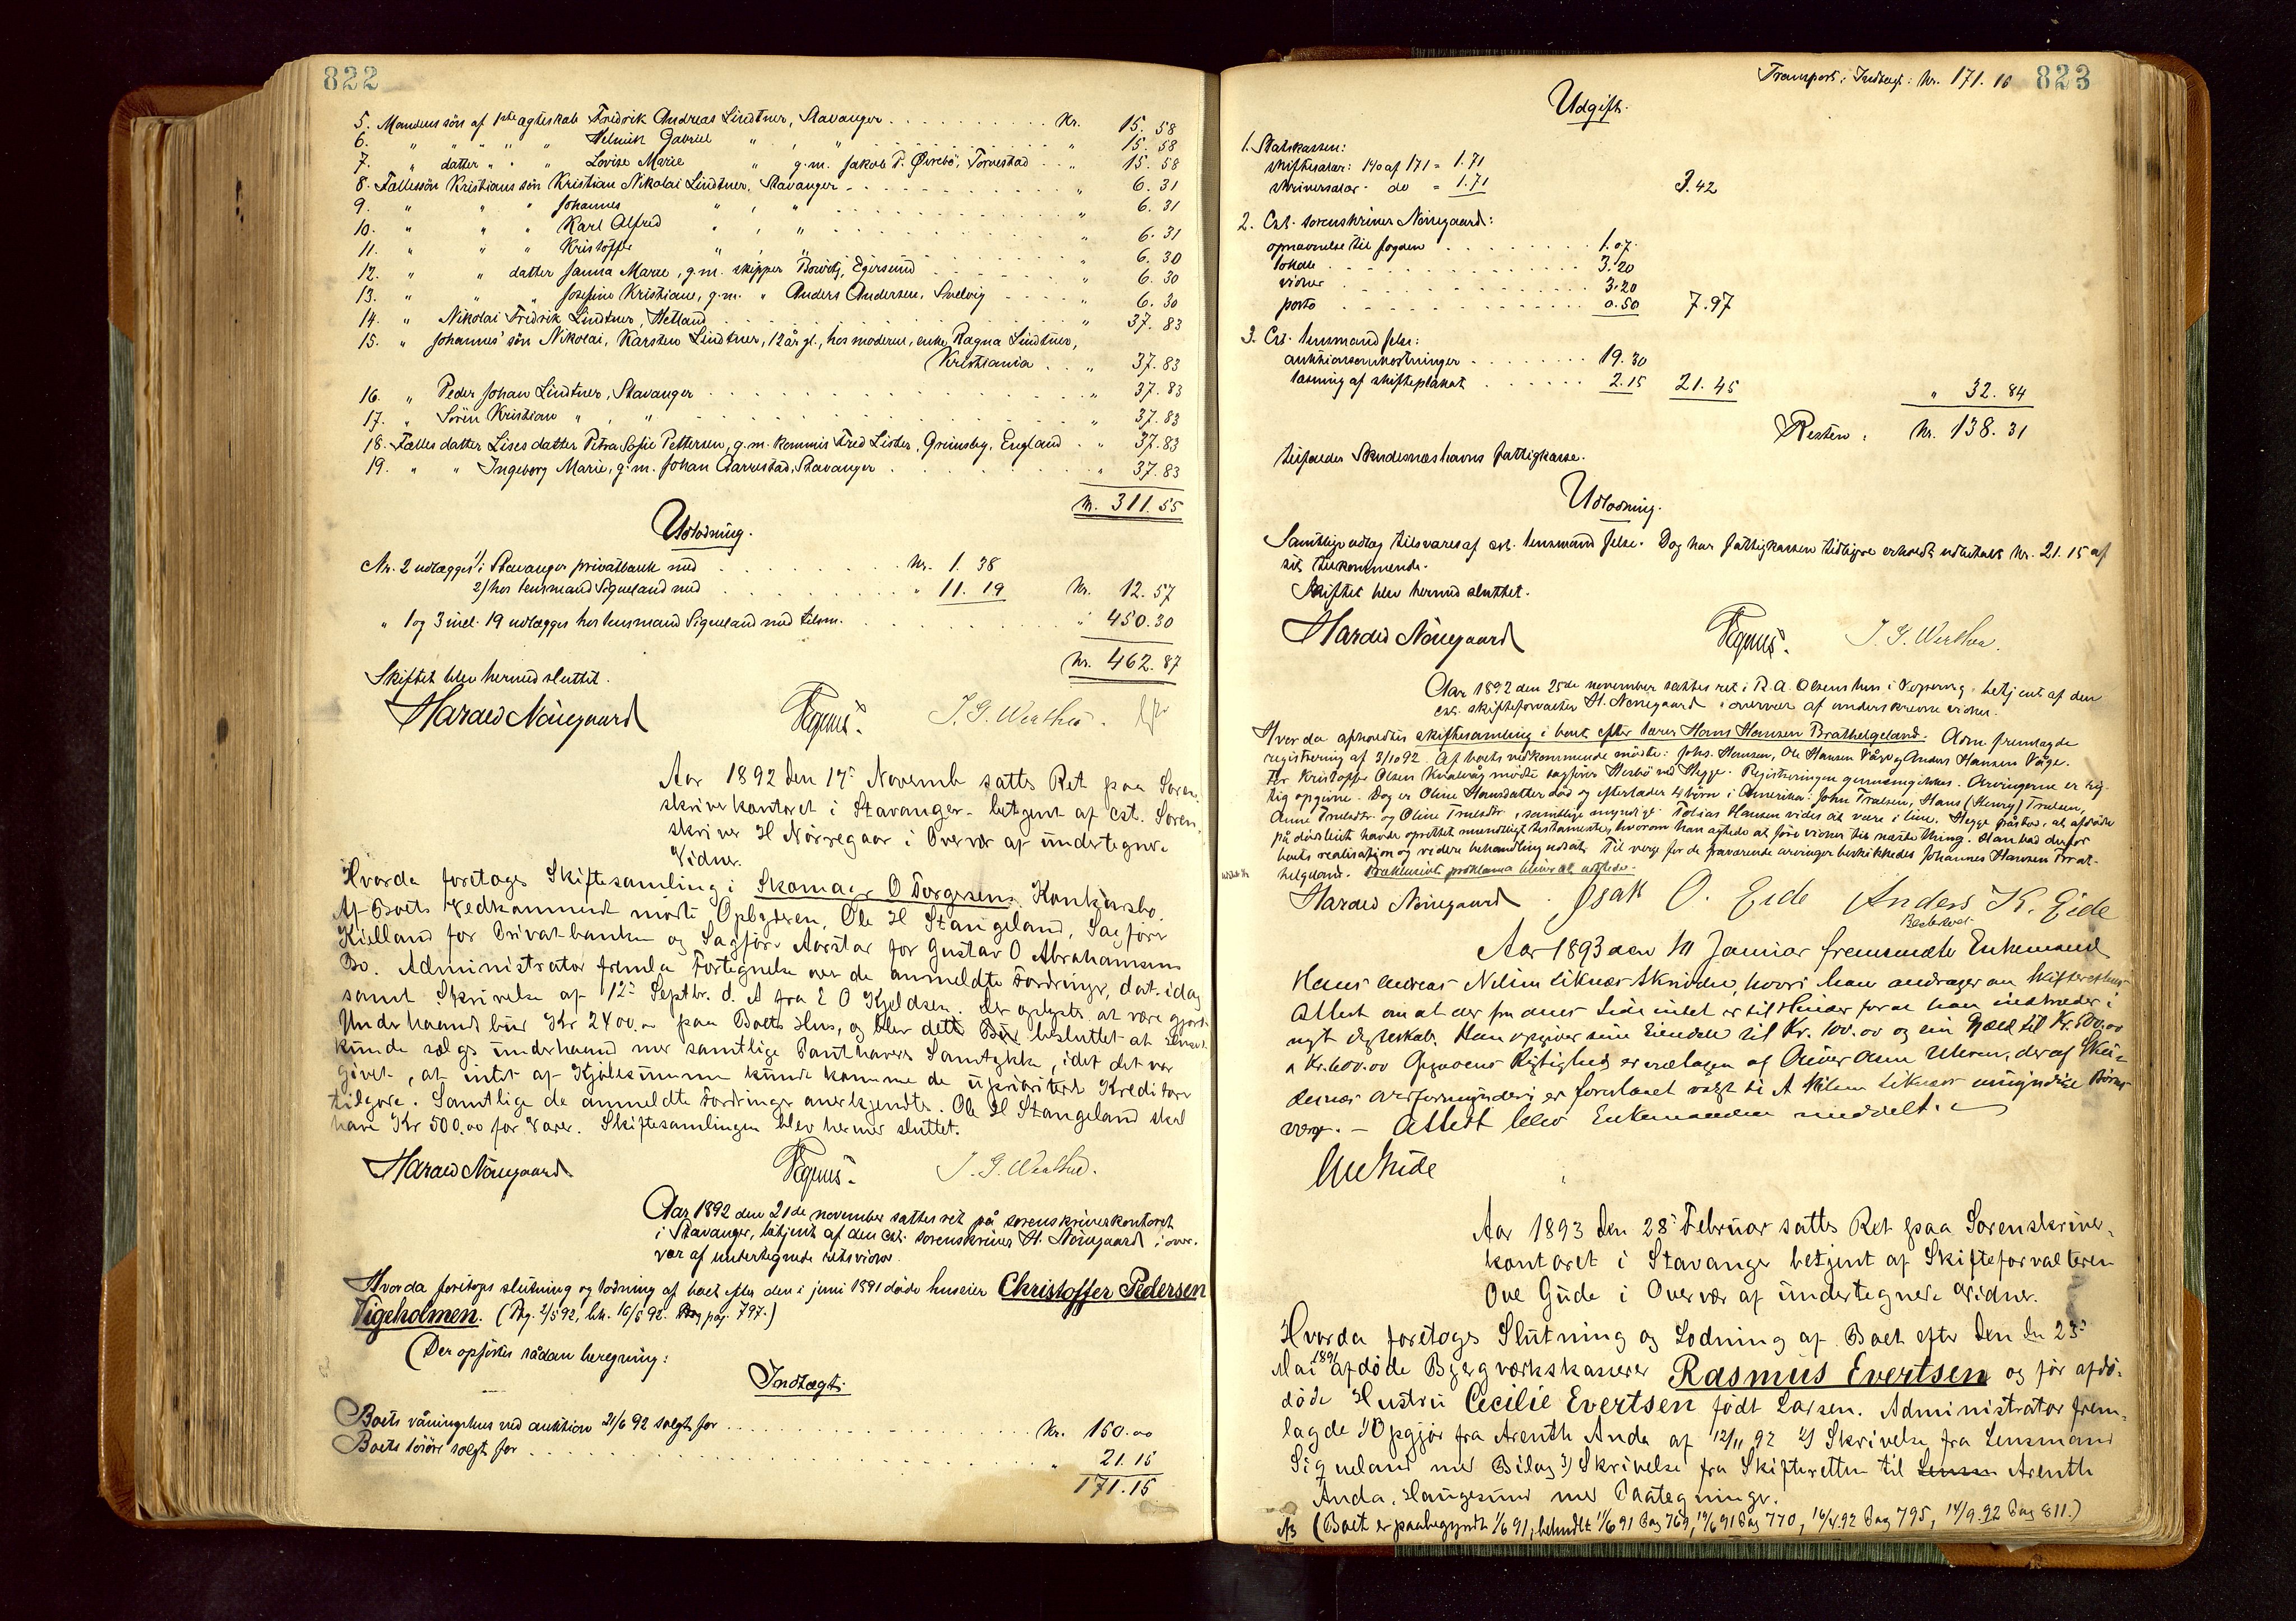 822
5. Mandens sön af 1ste ægteskab Fredrik Andreas Lindtner, Stavanger . . . . Kr. 15. 58
6. " " " " " Helmik Gabriel " , " . . . . " 15. 58
7. " datter " " " Lovise Marie " g.m. Jakob P. Øvrebö, Torvestad . . " 15. 58
8. Fællessön Kristians sön Kristian Nikolai Lindtner, Stavanger . . . . " 6. 31
9. " " " Johannes " , " . . . . " 6. 31
10. " " " Karl Alfred " , " . . . . " 6. 31
11. " " " Kristoffer " , " . . . . " 6. 30
12. " " datter Janna Marie, g.m. skipper Bowitz, Egersund . . . . " 6. 30
13. " " " Josefine Kristiane, g.m. " Anders Andersen, Svelvig . . . . " 6. 30
14. " Nikolai Fredrik Lindtner, Hetland . . . . " 37. 83
15. " Johannes' sön Nikolai Karsten Lindtner, 12 år gl., hos moderen, enke Ragna Lindtner,
Kristiania . . " 37. 83
16. " Peder Johan Lindtner, Stavanger . . . . " 37. 83
17. " Sören Kristian " , " . . . . " 37. 83
18. Fælles datter Lises datter Petra Sofie Pettersen, g.m. kommis Fred Lister, Grimsby, England . " 37. 83
19. " " Ingeborg Marie, g.m. Johan Aarrestad, Stavanger . . . . " 37. 83
Kr. 311. 55
Udlodning.
Nr. 2 udlægges 1/ i Stavanger privatbank med . . . . Kr. 1. 38
2/ hos lensmand Sigveland med . . . . " 11. 19 Kr. 12. 57
" 1 og 3 incl. 19 udlægges hos lensmand Sigveland med tilsm. . . . . " 450. 30
Kr. 462. 87
Skiftet blev hermed sluttet.
Harald Nörregaard J. G. Werthes.
Aar 1892 den 17de Novemb sattes Ret paa Soren-
skriverkontoret i Stavanger - betjent af cst. Soren-
skriver H Nörregaar i Overvær af undertegnede
Vidner.
Hvorda foretoges Skiftesamling i Skomager O Torgersens Konkursbo.
Af Boets Vedkommende mödte Opbyderen, Ole H Stangeland, Sagförer
Kielland for Privatbanken og Sagförer Aarstar for Gustav O Abrahamsens
Bo. Administrator fremla Fortegnelse over de anmeldte Fordringer, dat. idag
samt Skrivelse af 12te Septbr. d. A fra E O Kjeldsen. Der oplystes at være gjort
Underhaandsbud Kr 2400.00 paa Boets Hus, og blev dette Bud besluttet at
kunde sælges underhaand med samtlige Panthaveres Samtykke, idet det var
givet, at intet af Kjöbesummen kunde komme de uprioriterte Kreditorer
tilgode. Samtlige de anmeldte Fordringer anerkjendtes. Ole H Stangeland skal
have Kr 500.00 for Varer. Skiftesamlingen blev hermed sluttet.
Harald Nörregaard J. G. Werthes.
Aar 1892 den 21de november sattes ret på sorenskriverkontoret
i Stavanger, betjent af den cst. sorenskriver H. Nörregaard i over-
vær af undertegnede retsvidner.
Hvorda foretoges slutning og lodning af boet efter den i juni 1891 døde huseier Christoffer Pedersen
Vigeholmen. (Reg. 2/5 92, beh. 16/6 92. pag. 797.)
(Der opförtes sådan beregning:
Indtægt:
Boets våningshus ved auktion 21/6 92 solgt for . . . . Kr. 150.00
Boets lösöre solgt for . . . . " 21. 15
171. 15
Transport: Indtægt: Kr. 171. 15 823
Udgift.
1. Statskassen:
skiftesalær: 1% af 171 = 1.71
skriversalær - do = 1.71 3.42
2. Cst. sorenskriver Nörregaard:
opnævnelse til fogden . . . . 1.07
lokale . . . . 3.20
vidner . . . . 3.20
porto . . . . 0.50 7.97
3. Cst. lensmand Jelse:
auktionsomkostninger . . . . 19.30
læsning af skifteplakat . . . . 2.15 21.45 " 32. 84
Resten: Kr. 138. 31
tilfalder Skudesneshavns fattigkasse.
Udlodning.
Samtlige udlæg tilsvares af cst. lensmand Jelse. Dog har fattigkassen tidligere erholdt udbetalt Kr. 21. 15 af
sit tilkommende.
Skiftet blev hermed sluttet.
Harald Nörregaard J. G. Werthes.
Aar 1892 den 25de november sattes ret i R. A. Olsens hus i Kopervig, betjent af den
cst. skifteforvalter H. Nörregaard i overvær af underskrevne vidner.
Hvorda afholdtes skiftesamling i boet efter lærer Hans Hansen Brathelgeland. Adm. fremlagde
registrering af 3/10 92. Af boets vedkommende mödte: Johs. Hansen, Ole Hansen Våge og Anders Hansen Våge.
For Kristoffer Olsen mödte sagförer Hesbö ved Hegge. Registreringen gjennemgikkes. Arvingerne er rig-
tig opgivne. Dog er Oline Hansdatter död og efterlader 4 börn i Amerika: John Truelsen, Hans (Henry) Truelsen,
Anne Truelsdtr. og Oline Truelsdtr, samtlige myndige. Tobias Hansen vides at være i live. Hegge påstod, at afdöde
på dödsleiet havde oprettet mundtligt testamente, hvorom han agtede at före vidner til næste thing. Han bad derfor
boets realisation og videre behandling udsat. Til verge for de fraværende arvinger beskikkedes Johannes Hansen Brat-
helgeland. Præklusivt proklama bliver at udstede.
Harald Nörregaard. Isak O. Eide Anders K. Eide
Aar 1893 den 10 Januar fremmødte Enkemand
Hans Andreas Nilsen hvori han andrager om Skifterettens
Attest om at der fra dens Side intet er til Hinder for at han indtræder i
nyt Ægteskab. Han opgiver sine Eiendele til Kr. 100.00 og sin Gjæld til Kr. 500.00
Kr. 600.00 Opgavens Rigtighed er vedtagen af der af Sku-
desnes Overformynderi er foreslaaet valgt til umyndige Börns
værge. - Attest blev Enkemanden meddelt.
Ove Gude
Aar 1893 den 28de Februar sattes Ret paa Sorenskriver-
kontoret i Stavanger betjent af Skifteforvalteren
Ove Gude i Overvær af undertegnede Vidner.
Hvorda foretoges Slutning og Lodning af Boet efter den den 23de
Mai 1891 afdöde Bjergværkskaserer Rasmus Evertsen og för afdö-
döde Hustru Cecilie Evertsen födt Larsen. Administrator frem-
lagde 1) Opgjör fra Arenth Anda af 12/11 92 2) Skrivelse fra Lensmand
Sigveland med Bilag 3) Skrivelse fra Skifteretten til Lensm Arenth
Anda, Haugesund med Paategninger.
NB (Boet er paabegyndt 1/6 91, behandlt 11/6 91 Pag 769, 19/6 91 Pag 770, 16/4.92 Pag 795, 14/9.92 Pag 811.)